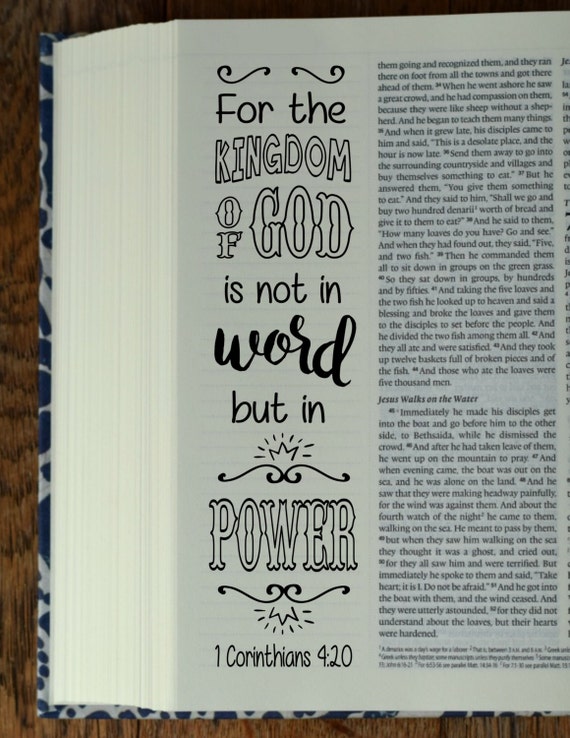 For the
KINGDOM
OF GOD
is not in
word
but in
POWER
1 Corinthians 4:20
them going and recognized them, and they ran
there on foot from all the towns and got there
ahead of them. 34 When he went ashore he saw
a great crowd, and he had compassion on them,
because they were like sheep without a shep-
herd. And he began to teach them many things.
35 And when it grew late, his disciples came to
him and said, "This is a desolate place, and the
hour is now late. 36 Send them away to go into
the surrounding countryside and villages and
buy themselves something to eat." 37 But he
answered them, "You give them something
to eat." And they said to him, "Shall we go and
buy two hundred denarii¹ worth of bread and
give it to them to eat?" 38 And he said to them,
"How many loaves do you have? Go and see."
And when they had found out, they said, "Five,
and two fish." 39 Then he commanded them
all to sit down in groups on the green grass.
40 So they sat down in groups, by hundreds
and by fifties. 41 And taking the five loaves and
the two fish he looked up to heaven and said a
blessing and broke the loaves and gave them
to the disciples to set before the people. And
he divided the two fish among them all. 42 And
they all ate and were satisfied. 43 And they took
up twelve baskets full of broken pieces and of
the fish. 44 And those who ate the loaves were
five thousand men.
Jesus Walks on the Water
45 Immediately he made his disciples get
into the boat and go before him to the other
side, to Bethsaida, while he dismissed the
crowd. 46 And after he had taken leave of them,
he went up on the mountain to pray. 47 And
when evening came, the boat was out on the
sea, and he was alone on the land. 48 And he
saw that they were making headway painfully,
for the wind was against them. And about the
fourth watch of the night² he came to them,
walking on the sea. He meant to pass by them,
49 but when they saw him walking on the sea
they thought it was a ghost, and cried out,
50 for they all saw him and were terrified. But
immediately he spoke to them and said, "Take
heart; it is I. Do not be afraid." 51 And he got into
the boat with them, and the wind ceased. And
they were utterly astounded, 52 for they did not
understand about the loaves, but their hearts
were hardened.